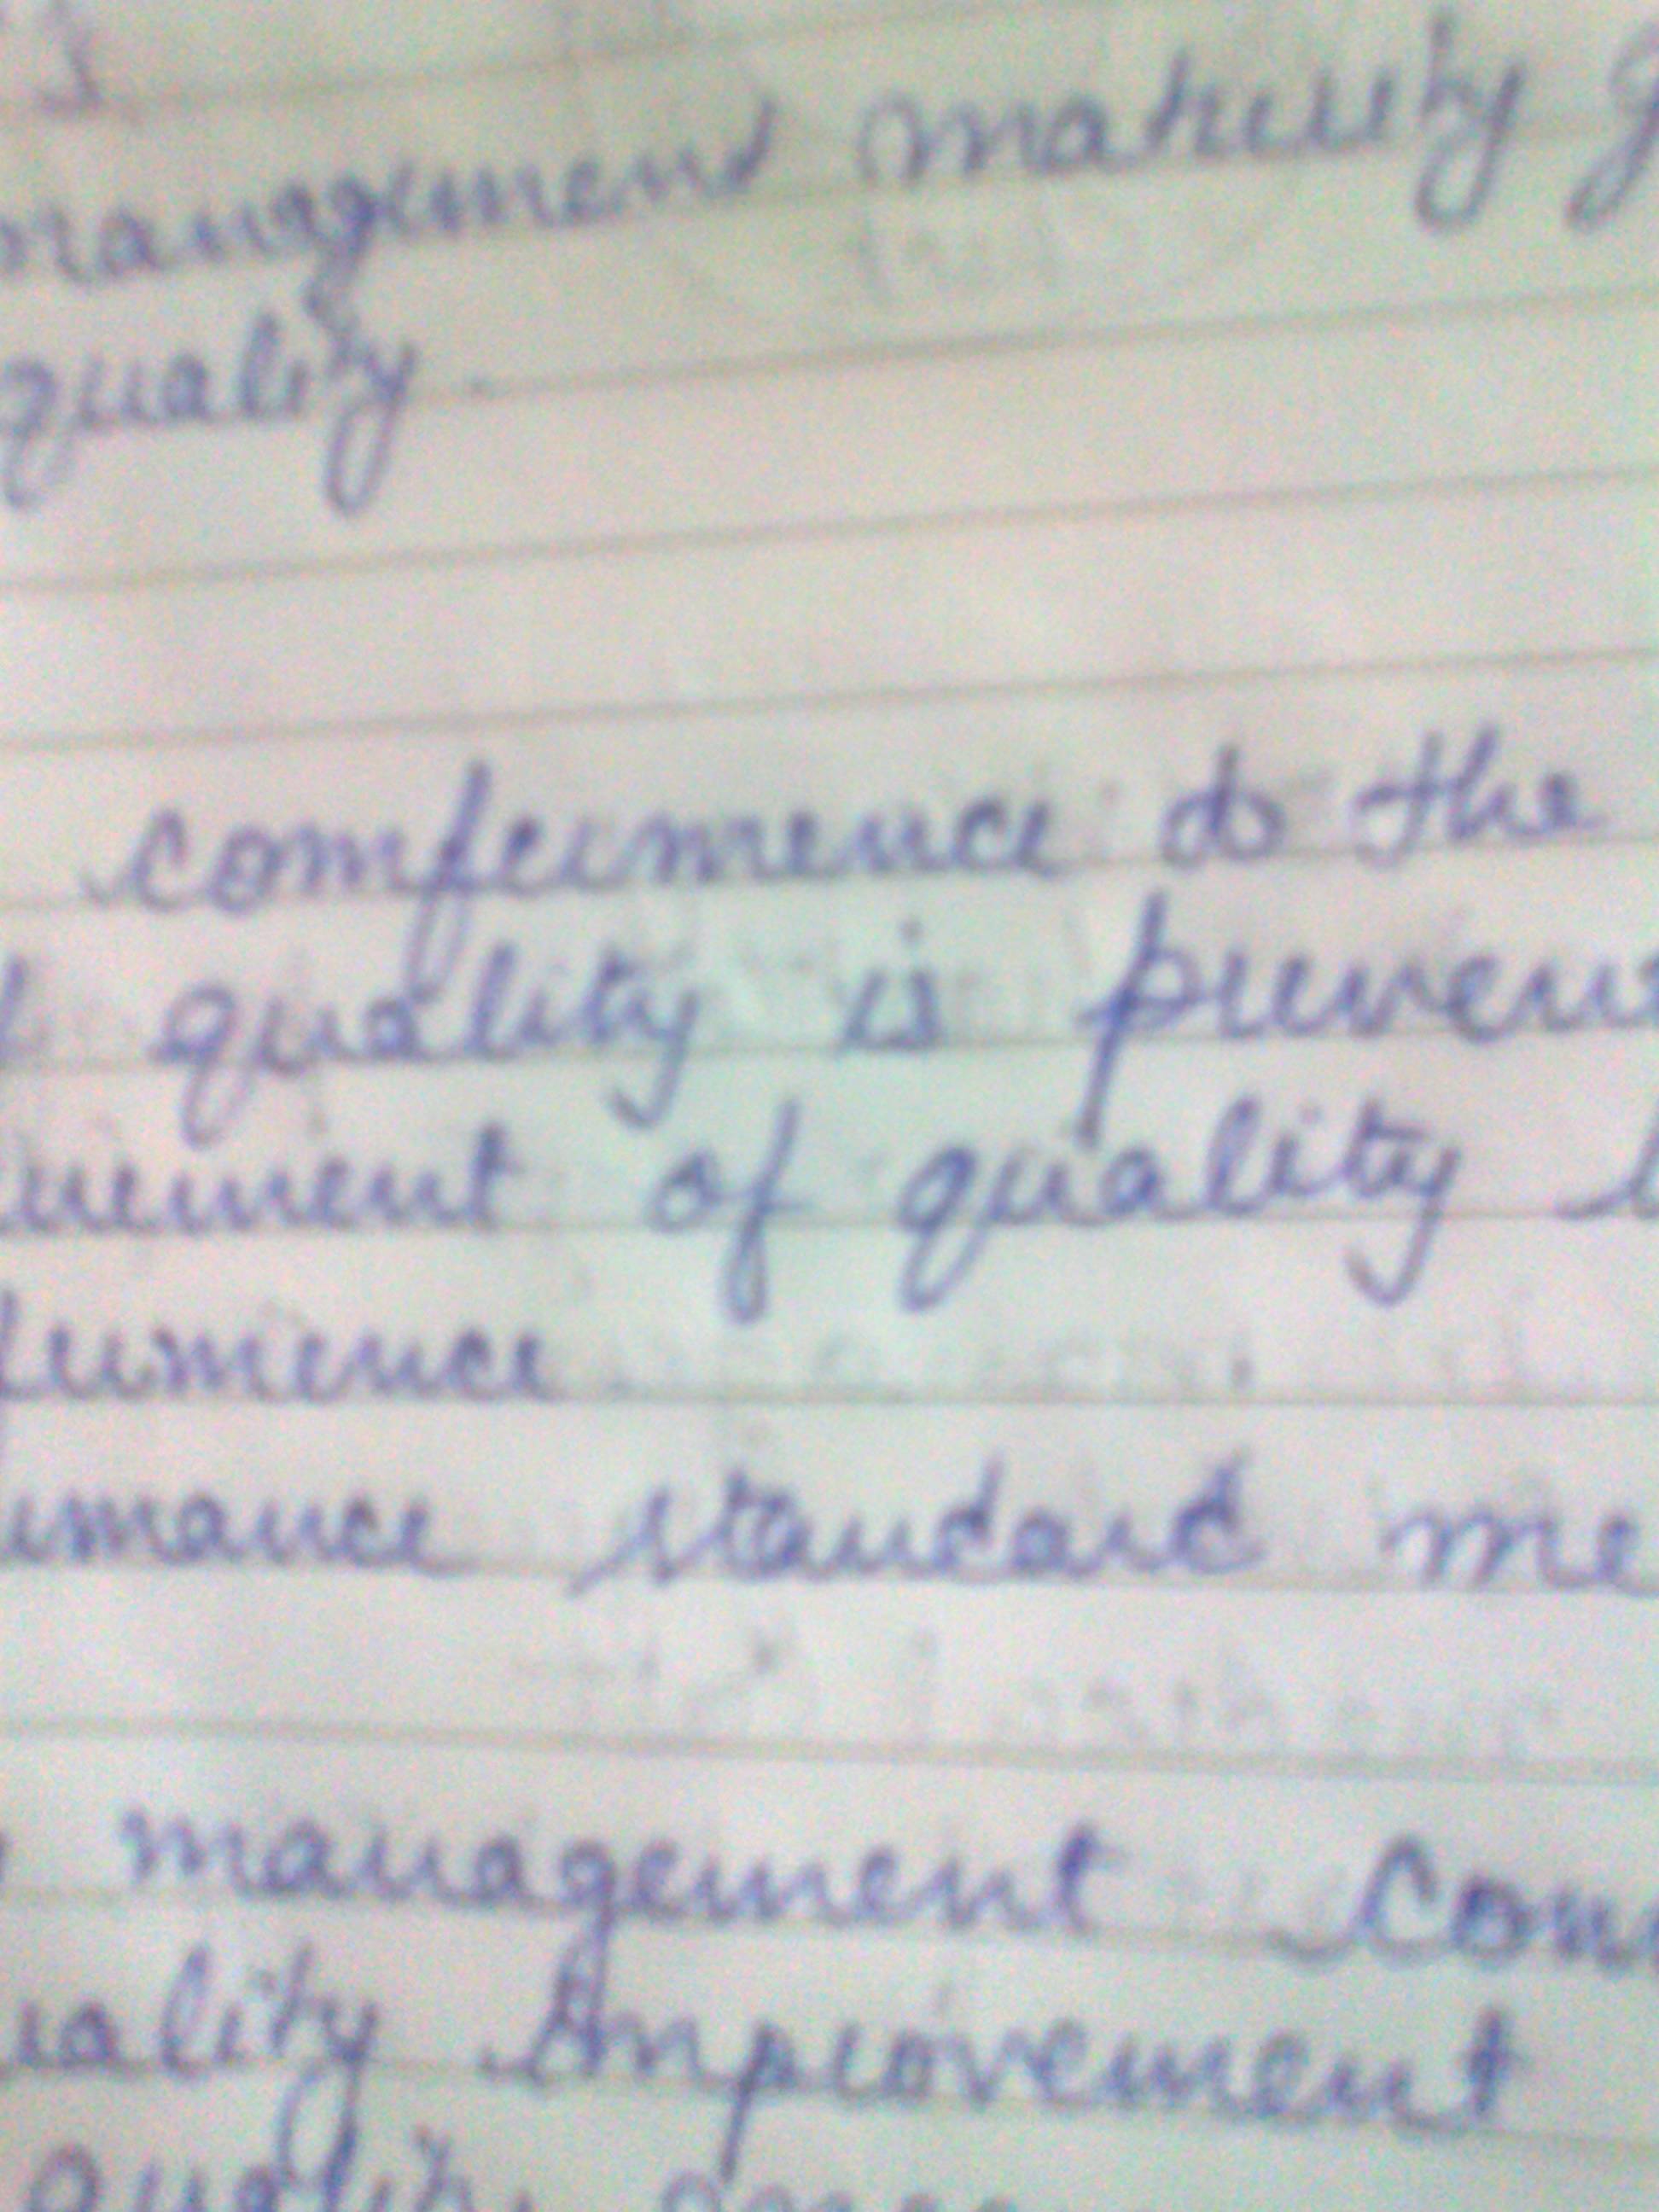 management maturity
quality.
comfermence to the
quality is prevent
urement of quality
fermence
rmance standard me
management Com
uality Improvement
quality